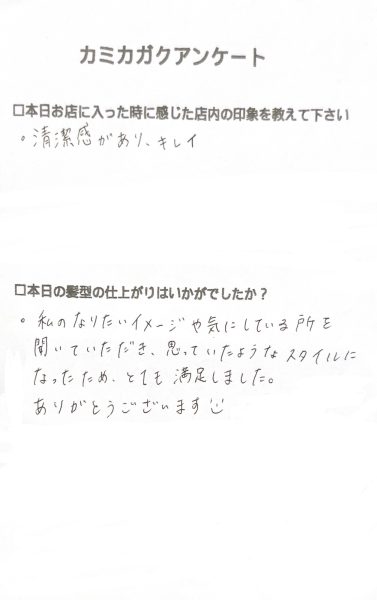 カミカガクアンケート
□本日お店に入った時に感じた店内の印象を教えて下さい
・清潔感があり、キレイ
□本日の髪型の仕上がりはいかがでしたか？
・私のなりたいイメージや気にしている所を
聞いていただき、思っていたようなスタイルに
なったため、とても満足しました。
ありがとうございます☺